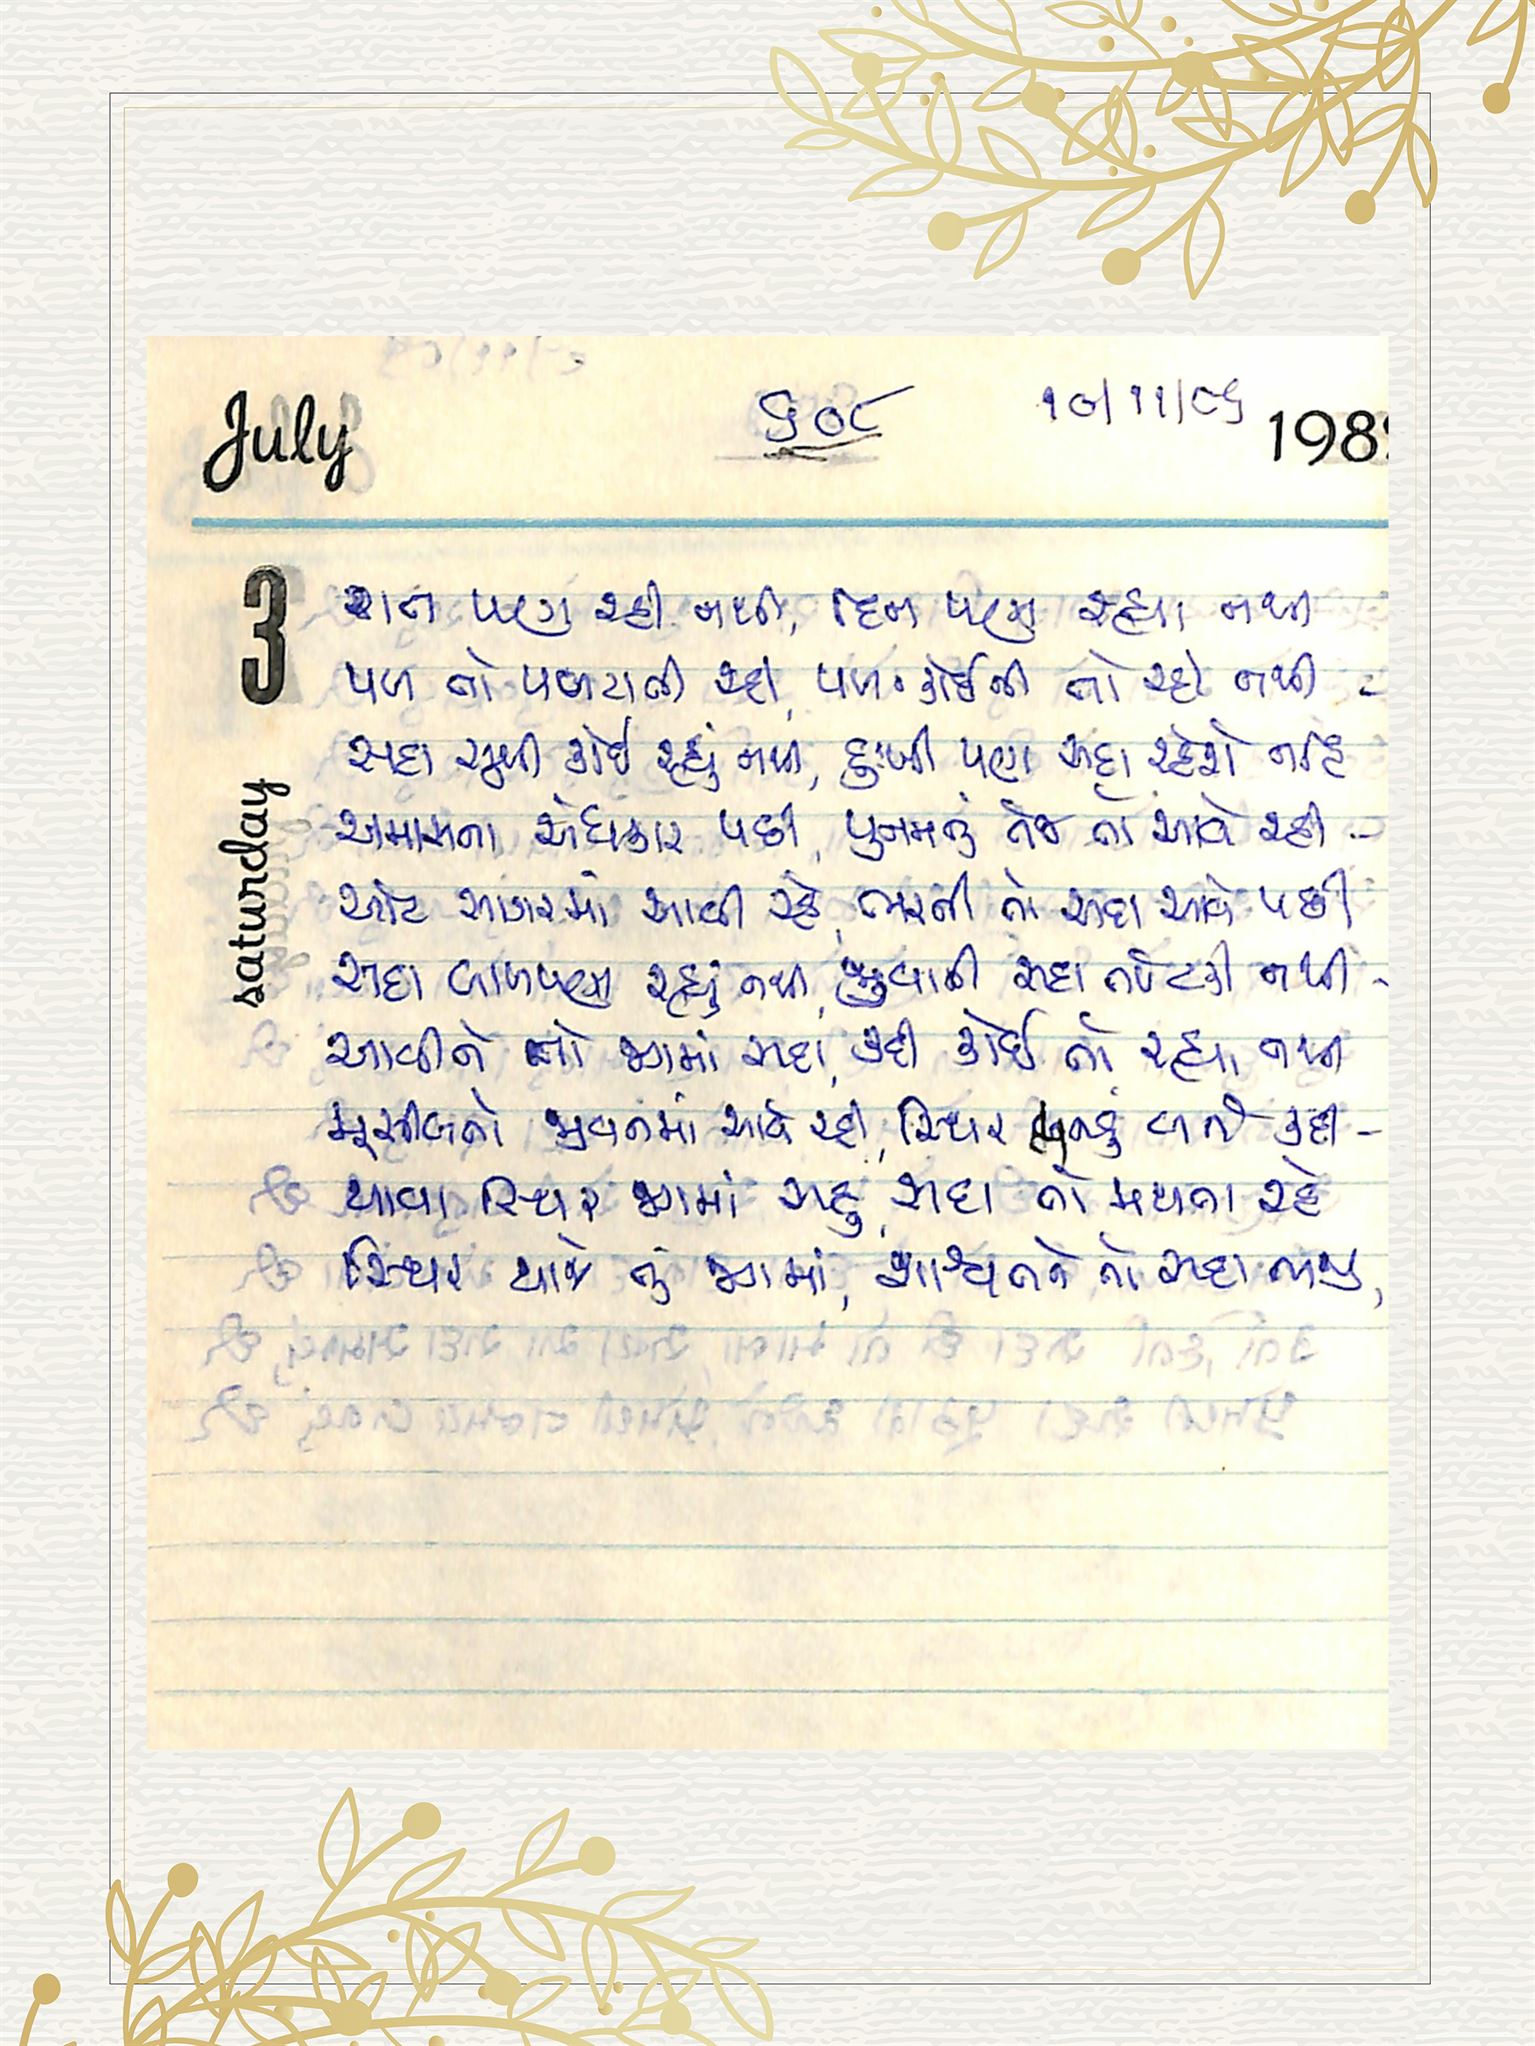 July ૬૦૮ ૧૦/૧૧/૮૬ 198
3
saturday
રાત પણ રહી નથી, દિન પણ રહ્યા નથી
પળ તો પલટાતી રહી, પળ કોઈની તો રહી નથી -
સદા સુખી કોઈ રહ્યું નથી, દુઃખી પણ સદા રહેશે નહિ
અમાસના અંધકાર પછી, પુનમનું તેજ તો આવે રહી -
ઓટ સાગરમાં આવી રહે, ભરતી તો સદા આવે પછી
સદા બાળપણ રહ્યું નથી, જુવાની સદા ટકી નથી -
આવીને તો જગમાં સદા, કદી કોઈ તો રહ્યા નથી
મુસીબતો જીવનમાં આવે રહી, સ્થિર તું બનજે કદી -
થાવા સ્થિર જગમાં સહુ, સદા તો મથતા રહે
સ્થિર થાજે તું જગમાં, શાશ્વતને તો સદા ભજી,